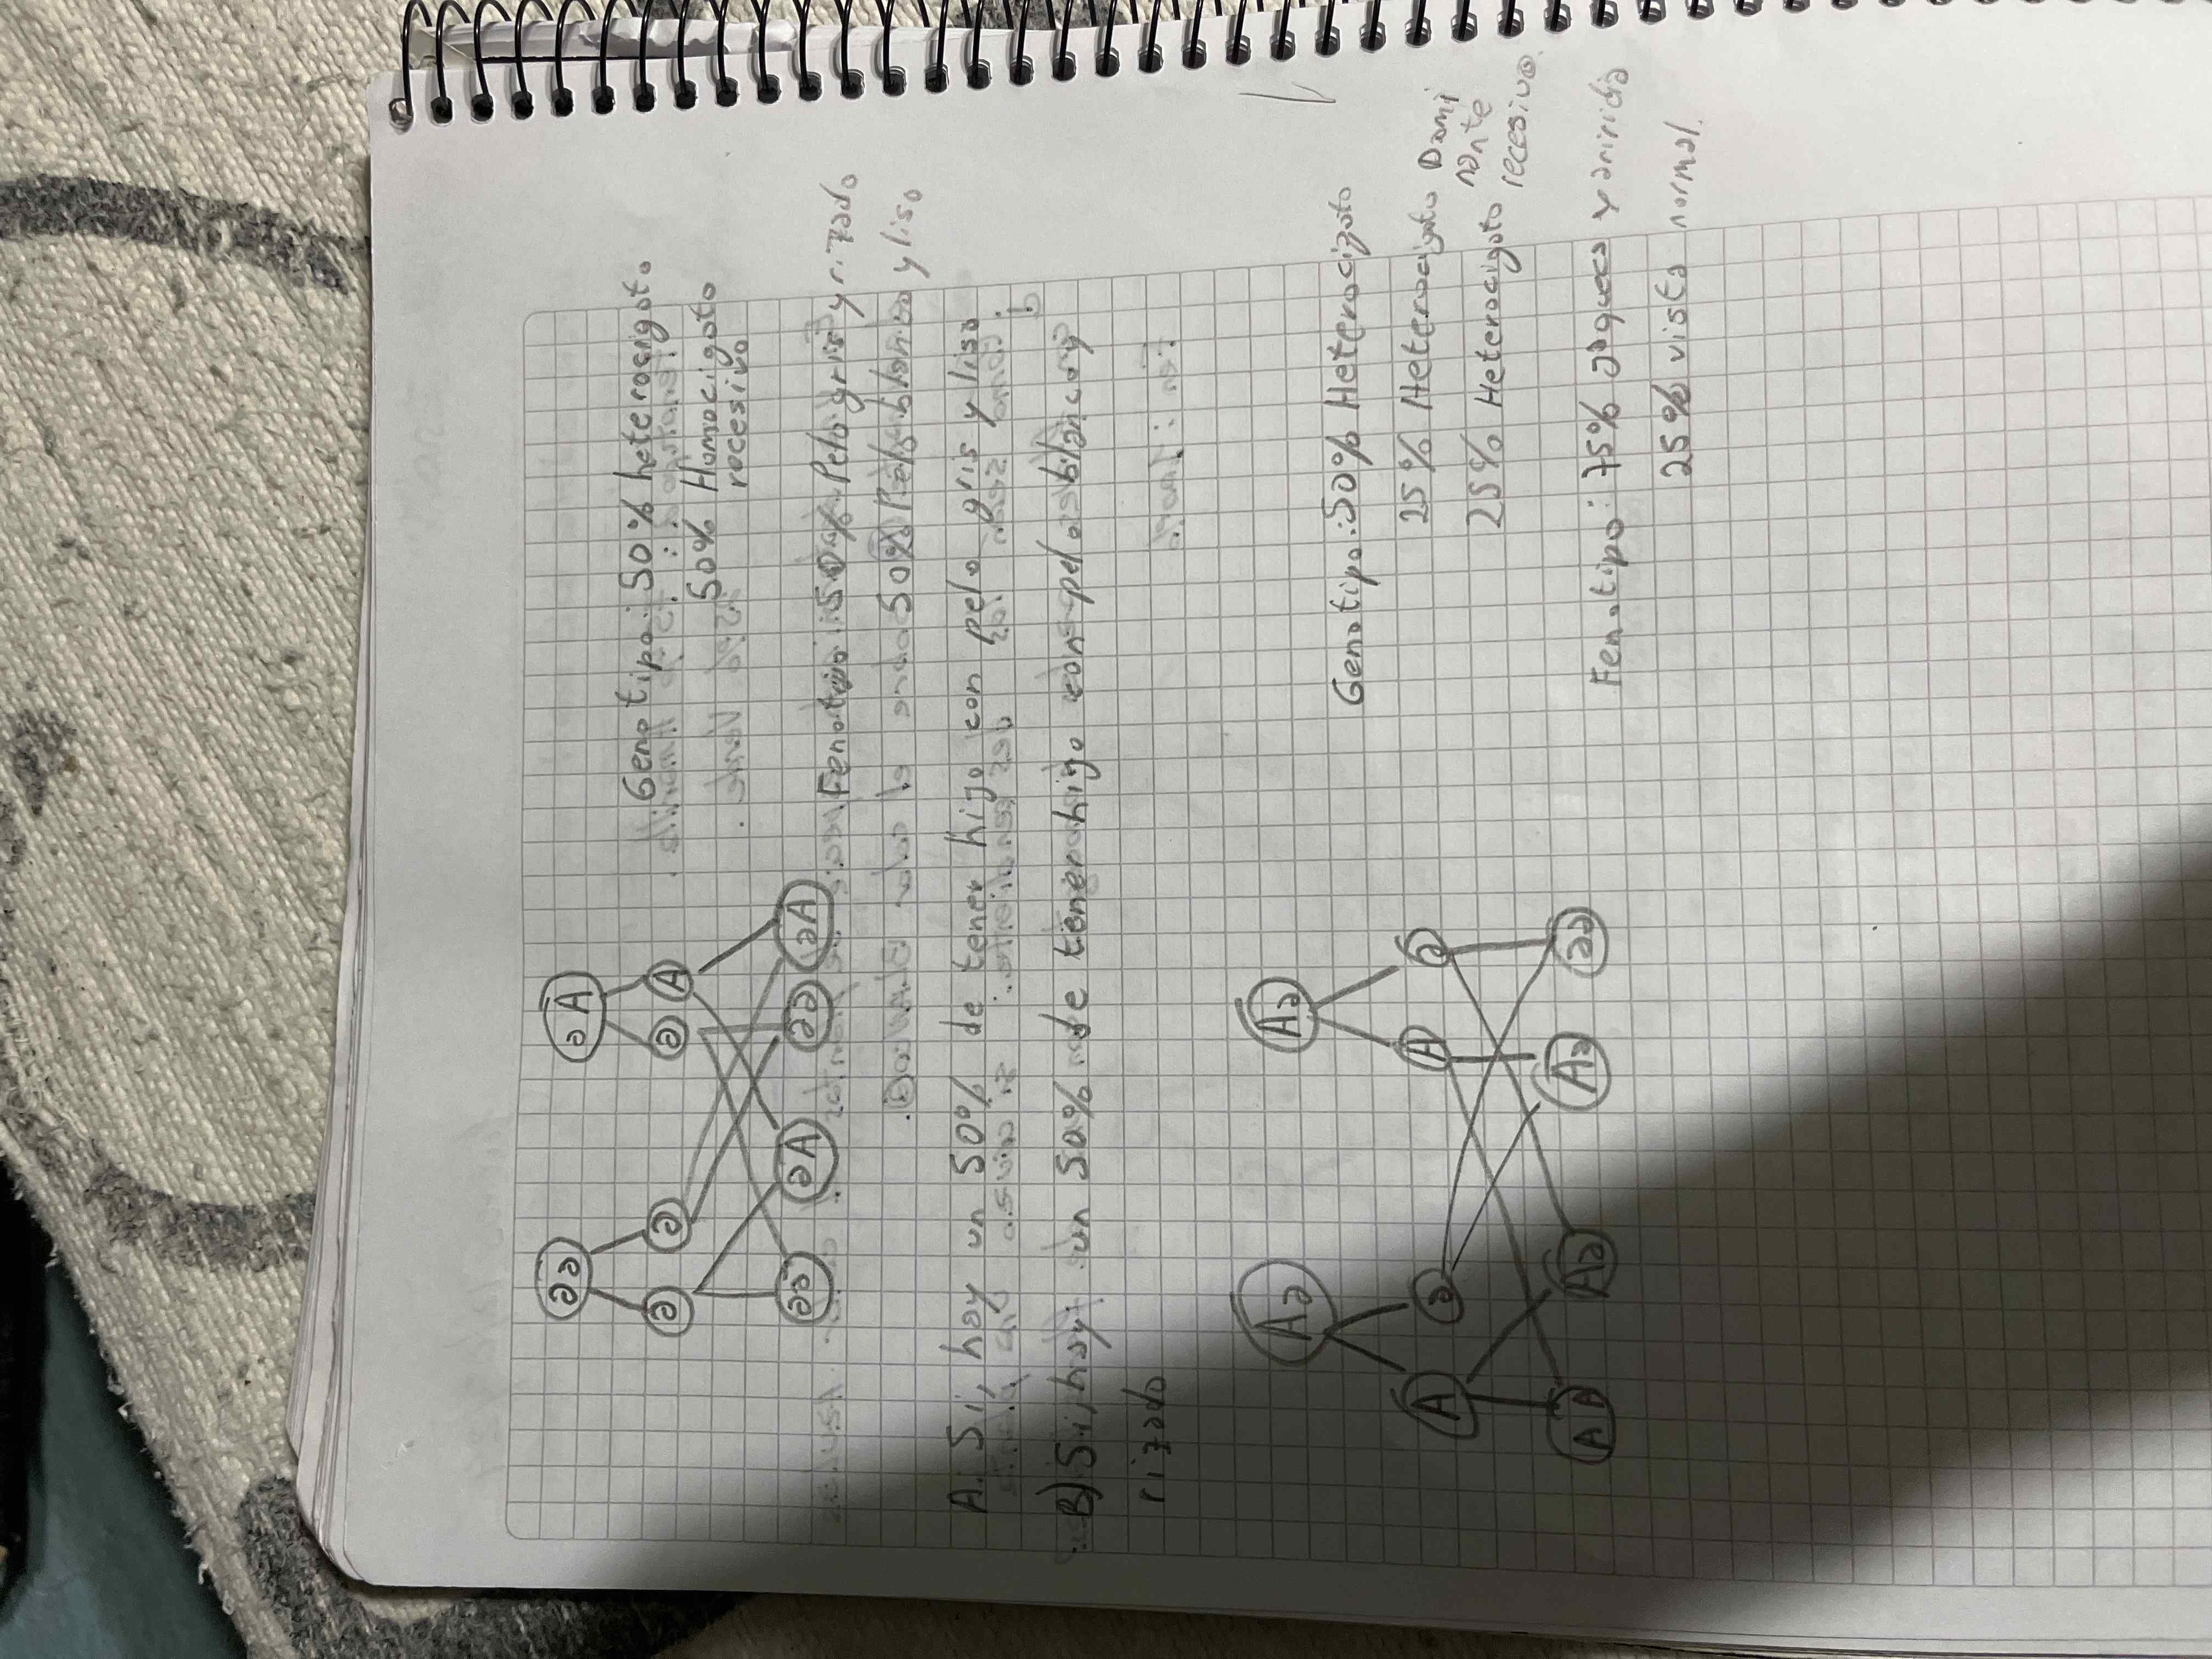 aa aA
a a a A
Genotipo: 50% heterocigoto
50% Homocigoto
recesivo
aa aA aa aA
Fenotipo: 50% Pelo gris y rizado
50% Pelo blanco y liso
A. Si, hay un 50% de tener hijo con pelo gris y liso
B) Si, hay un 50% de tener hijo con pelo blanco y
rizado
Aa Aa
A a A a
Genotipo: 50% Heterocigoto
25% Heterocigoto Domi
nante
25% Heterocigoto recesivo.
AA Aa Aa aa
Fenotipo: 75% y aniridia
25% vista normal.